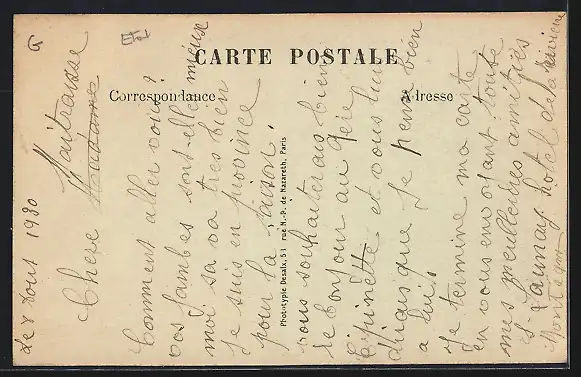 G
CARTE POSTALE
Correspondance
Adresse
Phototypie Desaix, 51 rue N.-D. de Nazareth, Paris
Le 8 Aout 1930
Chere Maitraisse
Madame
Comment aller vous ?
vos jambes sont-elle mieux
moi sa va tres bien
Je suis en province
pour la saison.
vous souhaiterais bien
le bonjour au
Epinette et vous lui
diais que Je pense bien
a lui.
Je termine ma carte
en vous envoyant toute
mes meulleures amitiés
Launay hotel de la Riviere